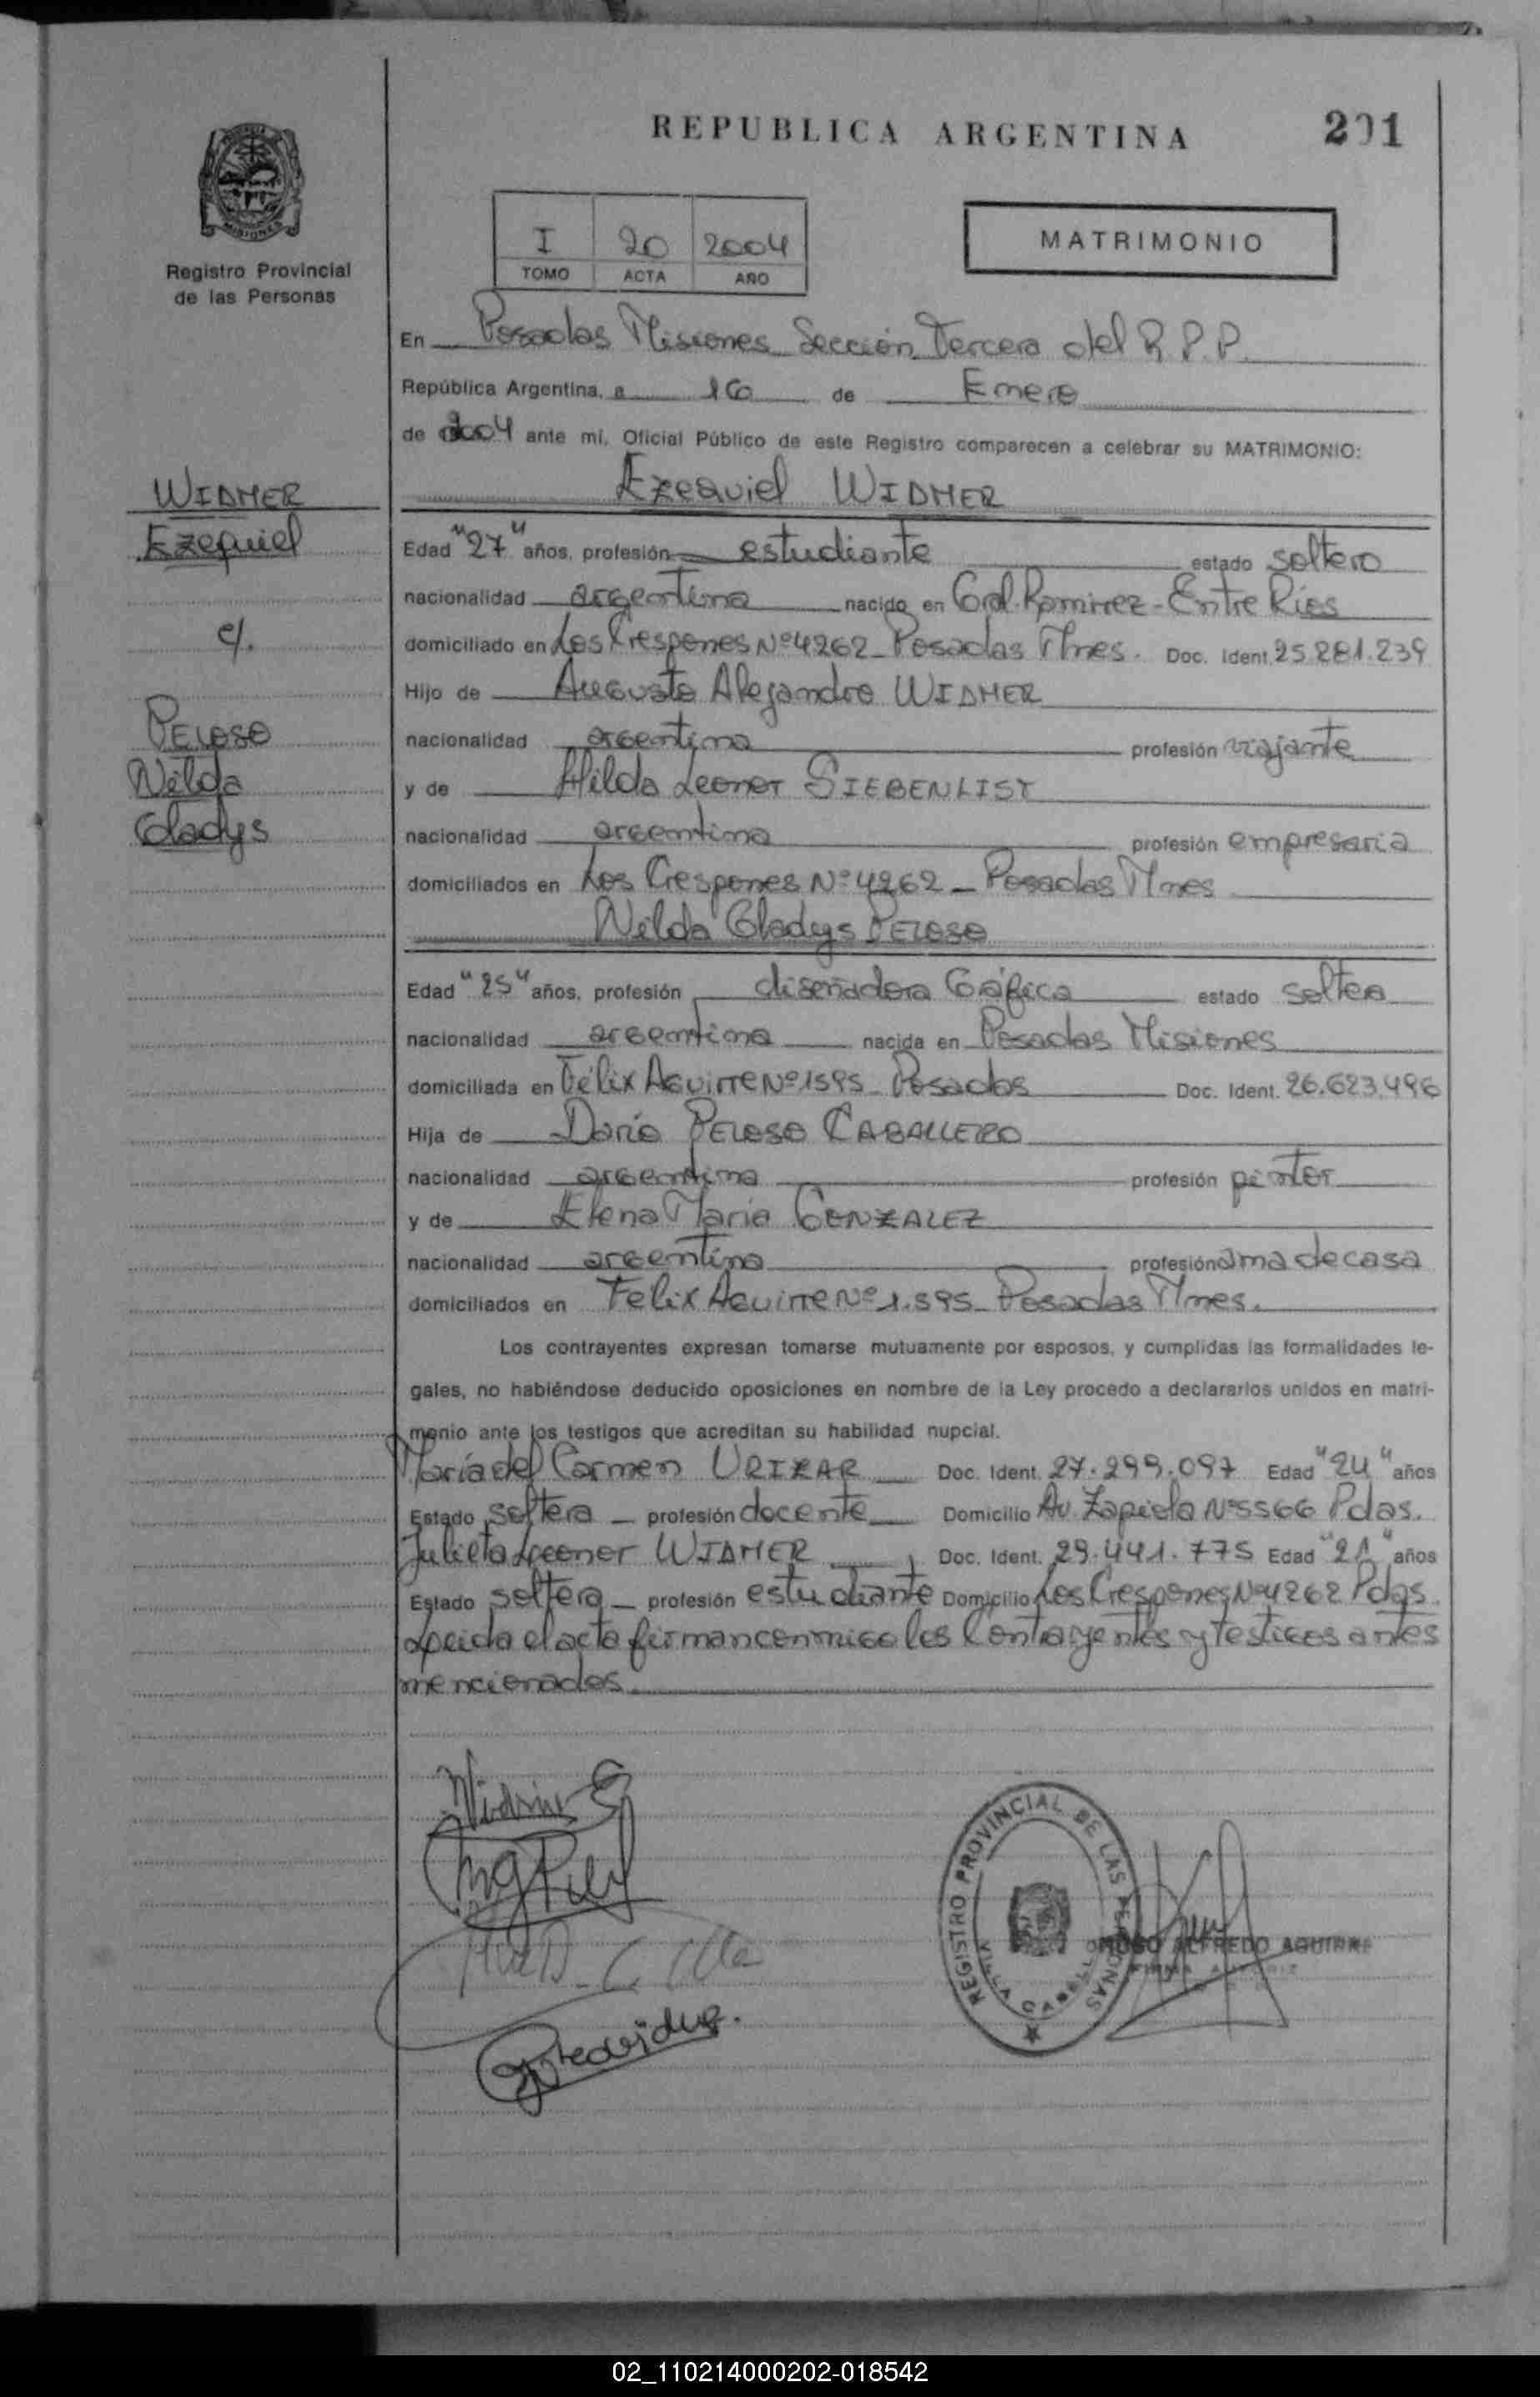 REPUBLICA ARGENTINA
201
MISIONES
Registro Provincial
de las Personas
I 20 2004
TOMO ACTA AÑO
MATRIMONIO
En Posadas Misiones Sección Tercera del R.P.P.
República Argentina, a 16 de Enero
de 2004 ante mí, Oficial Público de este Registro comparecen a celebrar su MATRIMONIO:
WIDMER
Ezequiel
c/.
PELOSO
Nilda
Gladys
Ezequiel WIDMER
Edad "27" años, profesión estudiante estado soltero
nacionalidad argentina nacido en Gral. Ramirez - Entre Ríos
domiciliado en Los Crespones Nº 4262 - Posadas Mnes. Doc. Ident. 25.281.239
Hijo de Augusto Alejandro WIDMER
nacionalidad argentina profesión viajante
y de Hilda Leonor SIEBENLIST
nacionalidad argentina profesión empresaria
domiciliados en Los Crespones Nº 4262 - Posadas Mnes
Nilda Gladys PELOSO
Edad "25" años, profesión diseñadora Gráfica estado soltera
nacionalidad argentina nacida en Posadas Misiones
domiciliada en Félix Aguirre Nº 1595 - Posadas Doc. Ident. 26.623.496
Hija de Darío PELOSO CABALLERO
nacionalidad argentina profesión pintor
y de Elena María GONZALEZ
nacionalidad argentina profesión ama de casa
domiciliados en Felix Aguirre Nº 1.595 - Posadas Mnes.
Los contrayentes expresan tomarse mutuamente por esposos, y cumplidas las formalidades le-
gales, no habiéndose deducido oposiciones en nombre de la Ley procedo a declararlos unidos en matri-
monio ante los testigos que acreditan su habilidad nupcial.
María del Carmen URIZAR Doc. Ident. 27.299.097 Edad "24" años
Estado soltera - profesión docente Domicilio Av. Zapiola Nº 5566 Pdas.
Julieta Leonor WIDMER Doc. Ident. 29.441.775 Edad "21" años
Estado soltera - profesión estudiante Domicilio Los Crespones Nº 4262 Pdas.
Leida el acta firman conmigo los Contrayentes y testigos antes
mencionados.
REGISTRO PROVINCIAL DE LAS PERSONAS
VILLA CABELLO
ALFREDO AGUIRRE
FIRMA
02_110214000202-018542